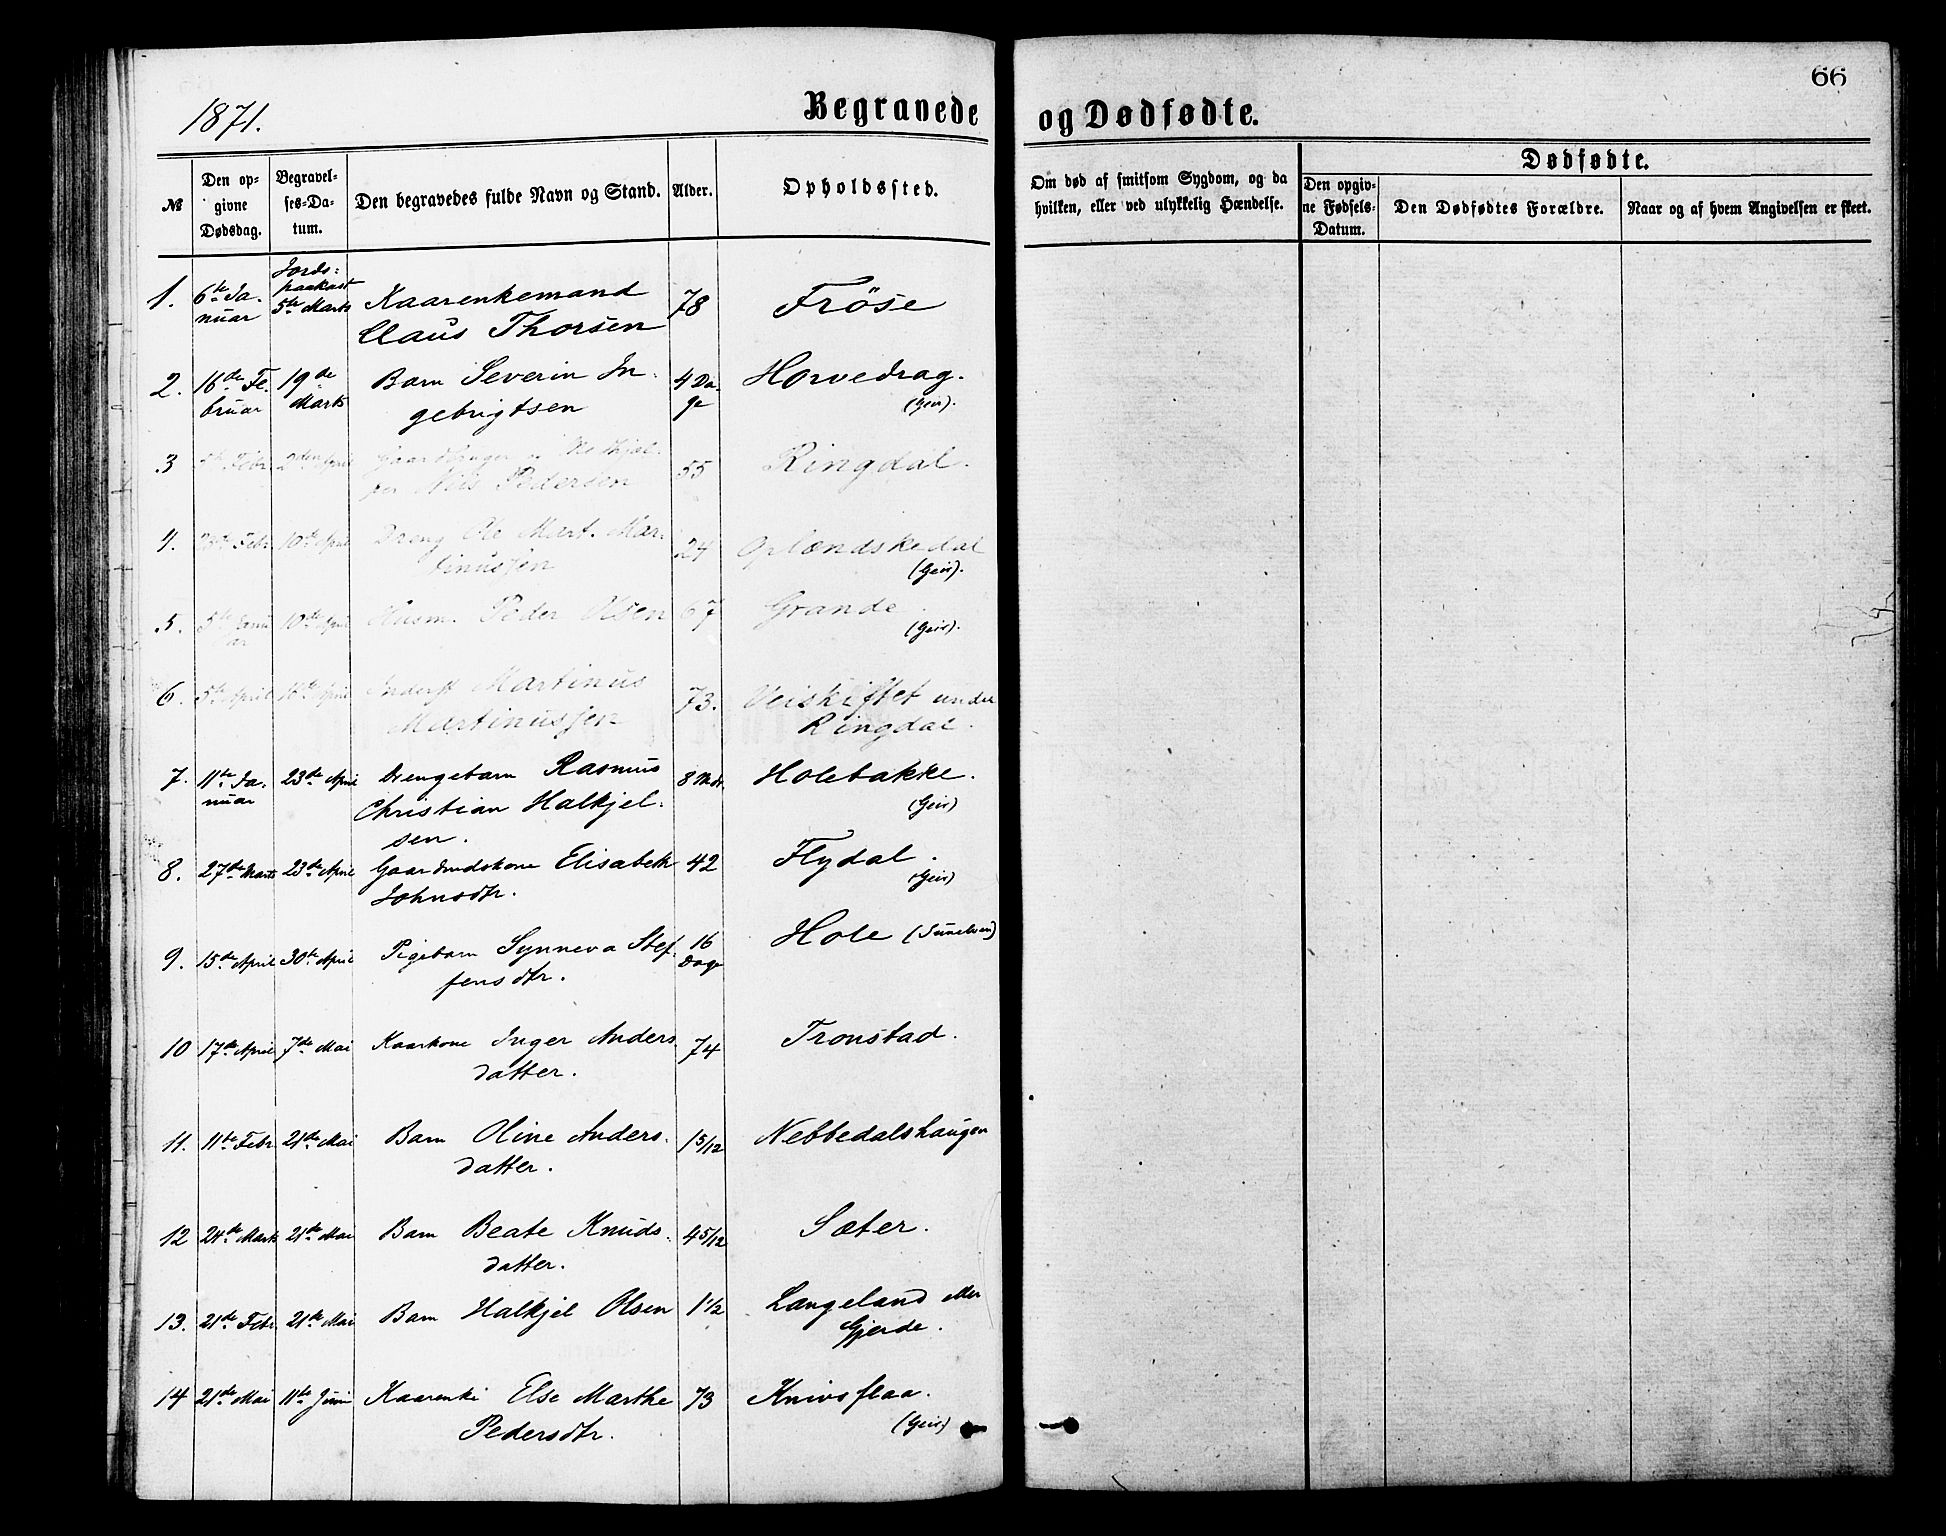 66
1871.
Begravede
og Dødfødte.
№
Den opgivne Dødsdag.
Begravelses-Datum.
Den begravedes fulde Navn og Stand.
Alder.
Opholdssted.
Om død af smitsom Sygdom, og da hvilken, eller ved ulykkelig Hændelse.
Dødfødte.
Den opgivne Fødsels-Datum.
Den Dødfødtes Forældre.
Naar og af hvem Angivelsen er skeet.
1. 6te Januar Jordspaakast 5te Marts Kaarenkemand 78 Frøse
Claus Thorsen
2. 16de Februar 19de Marts Barn Severin In- 4 Dage Horvedrag.
gebrigtsen (Geir).
3 Febr. 2den April 55 Ringdal.
Nils Pedersen
4. Febr. 10de April Dreng Ole Mart. Mar- 24 Oplændskedal
tinussen (Geir).
5. 10de April Husm. Peder Olsen 67 Grande
(Geir).
6. 5te April 16de April Inderst Martinus 73. Veiskiftet under
Martinussen Ringdal.
7. 11te Januar 23de April Drengebarn Rasmus 8 Mdr. Holebakke.
Christian Halkjel- (Geir)
sen.
8. 27de Marts 23de April Gaardmdskone Elisabeth 42 Flydal.
Johnsdtr. (Geir)
9. 15de April 30te April Pigebarn Synneva Stef- 16 Dage Hole (Sunelven)
fensdtr.
10 17de April 7de Mai Kaarkone Inger Anders- 74 Tronstad.
datter.
11. 11te Febr. 21de Mai Barn Oline Anders- 1 5/12 Nebbedalshaugen
datter.
12 24de Marts 21de Mai Barn Beate Knuds- 4 5/12 Sæter.
datter.
13. 21de Febr. 21de Mai Barn Halkjel Olsen 1 1/2 Langeland eller
Gjerde.
14 21de Mai 11te Juni Kaarenke Else Marthe 73 Knivsflaa.
Pedersdtr. (Geir)